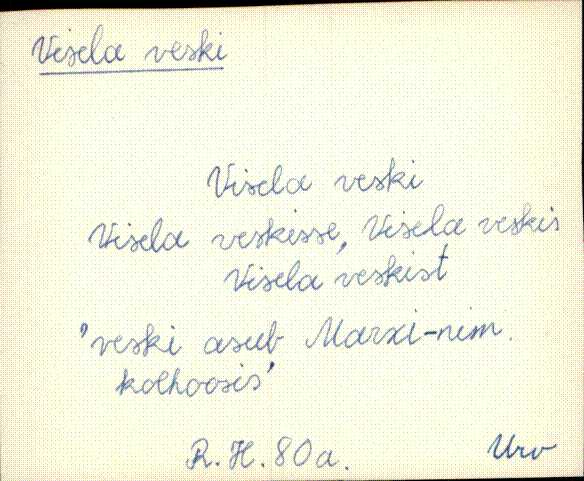 Visela veski
Visela veski
Visela veskisse, Visela veskis
Visela veskist
'veski asub Marxi-nim.
kolhoosis'
R.H. 80a. Urv